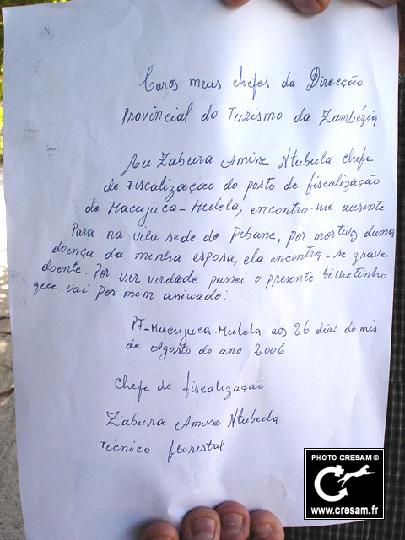 Caros meus chefes da Direcção
Provincial do Turismo da Zambézia
Eu Zabura Amisse Ntubula chefe
de fiscalização do posto de fiscalização
de Macujuca-Mulela, encontro-me ausente
Para na vila sede de Pebane, por motivos duma
doença da minha esposa, ela encontra-se grave
doente. Por ser verdade passei o presente bilhetinho
que vai por mim assinado:
PF-Macujuca-Mulela aos 26 dias do mês
de Agosto do ano 2006
Chefe de fiscalização
Zabura Amisse Ntubula
Técnico florestal
PHOTO CRESAM ©
www.cresam.fr